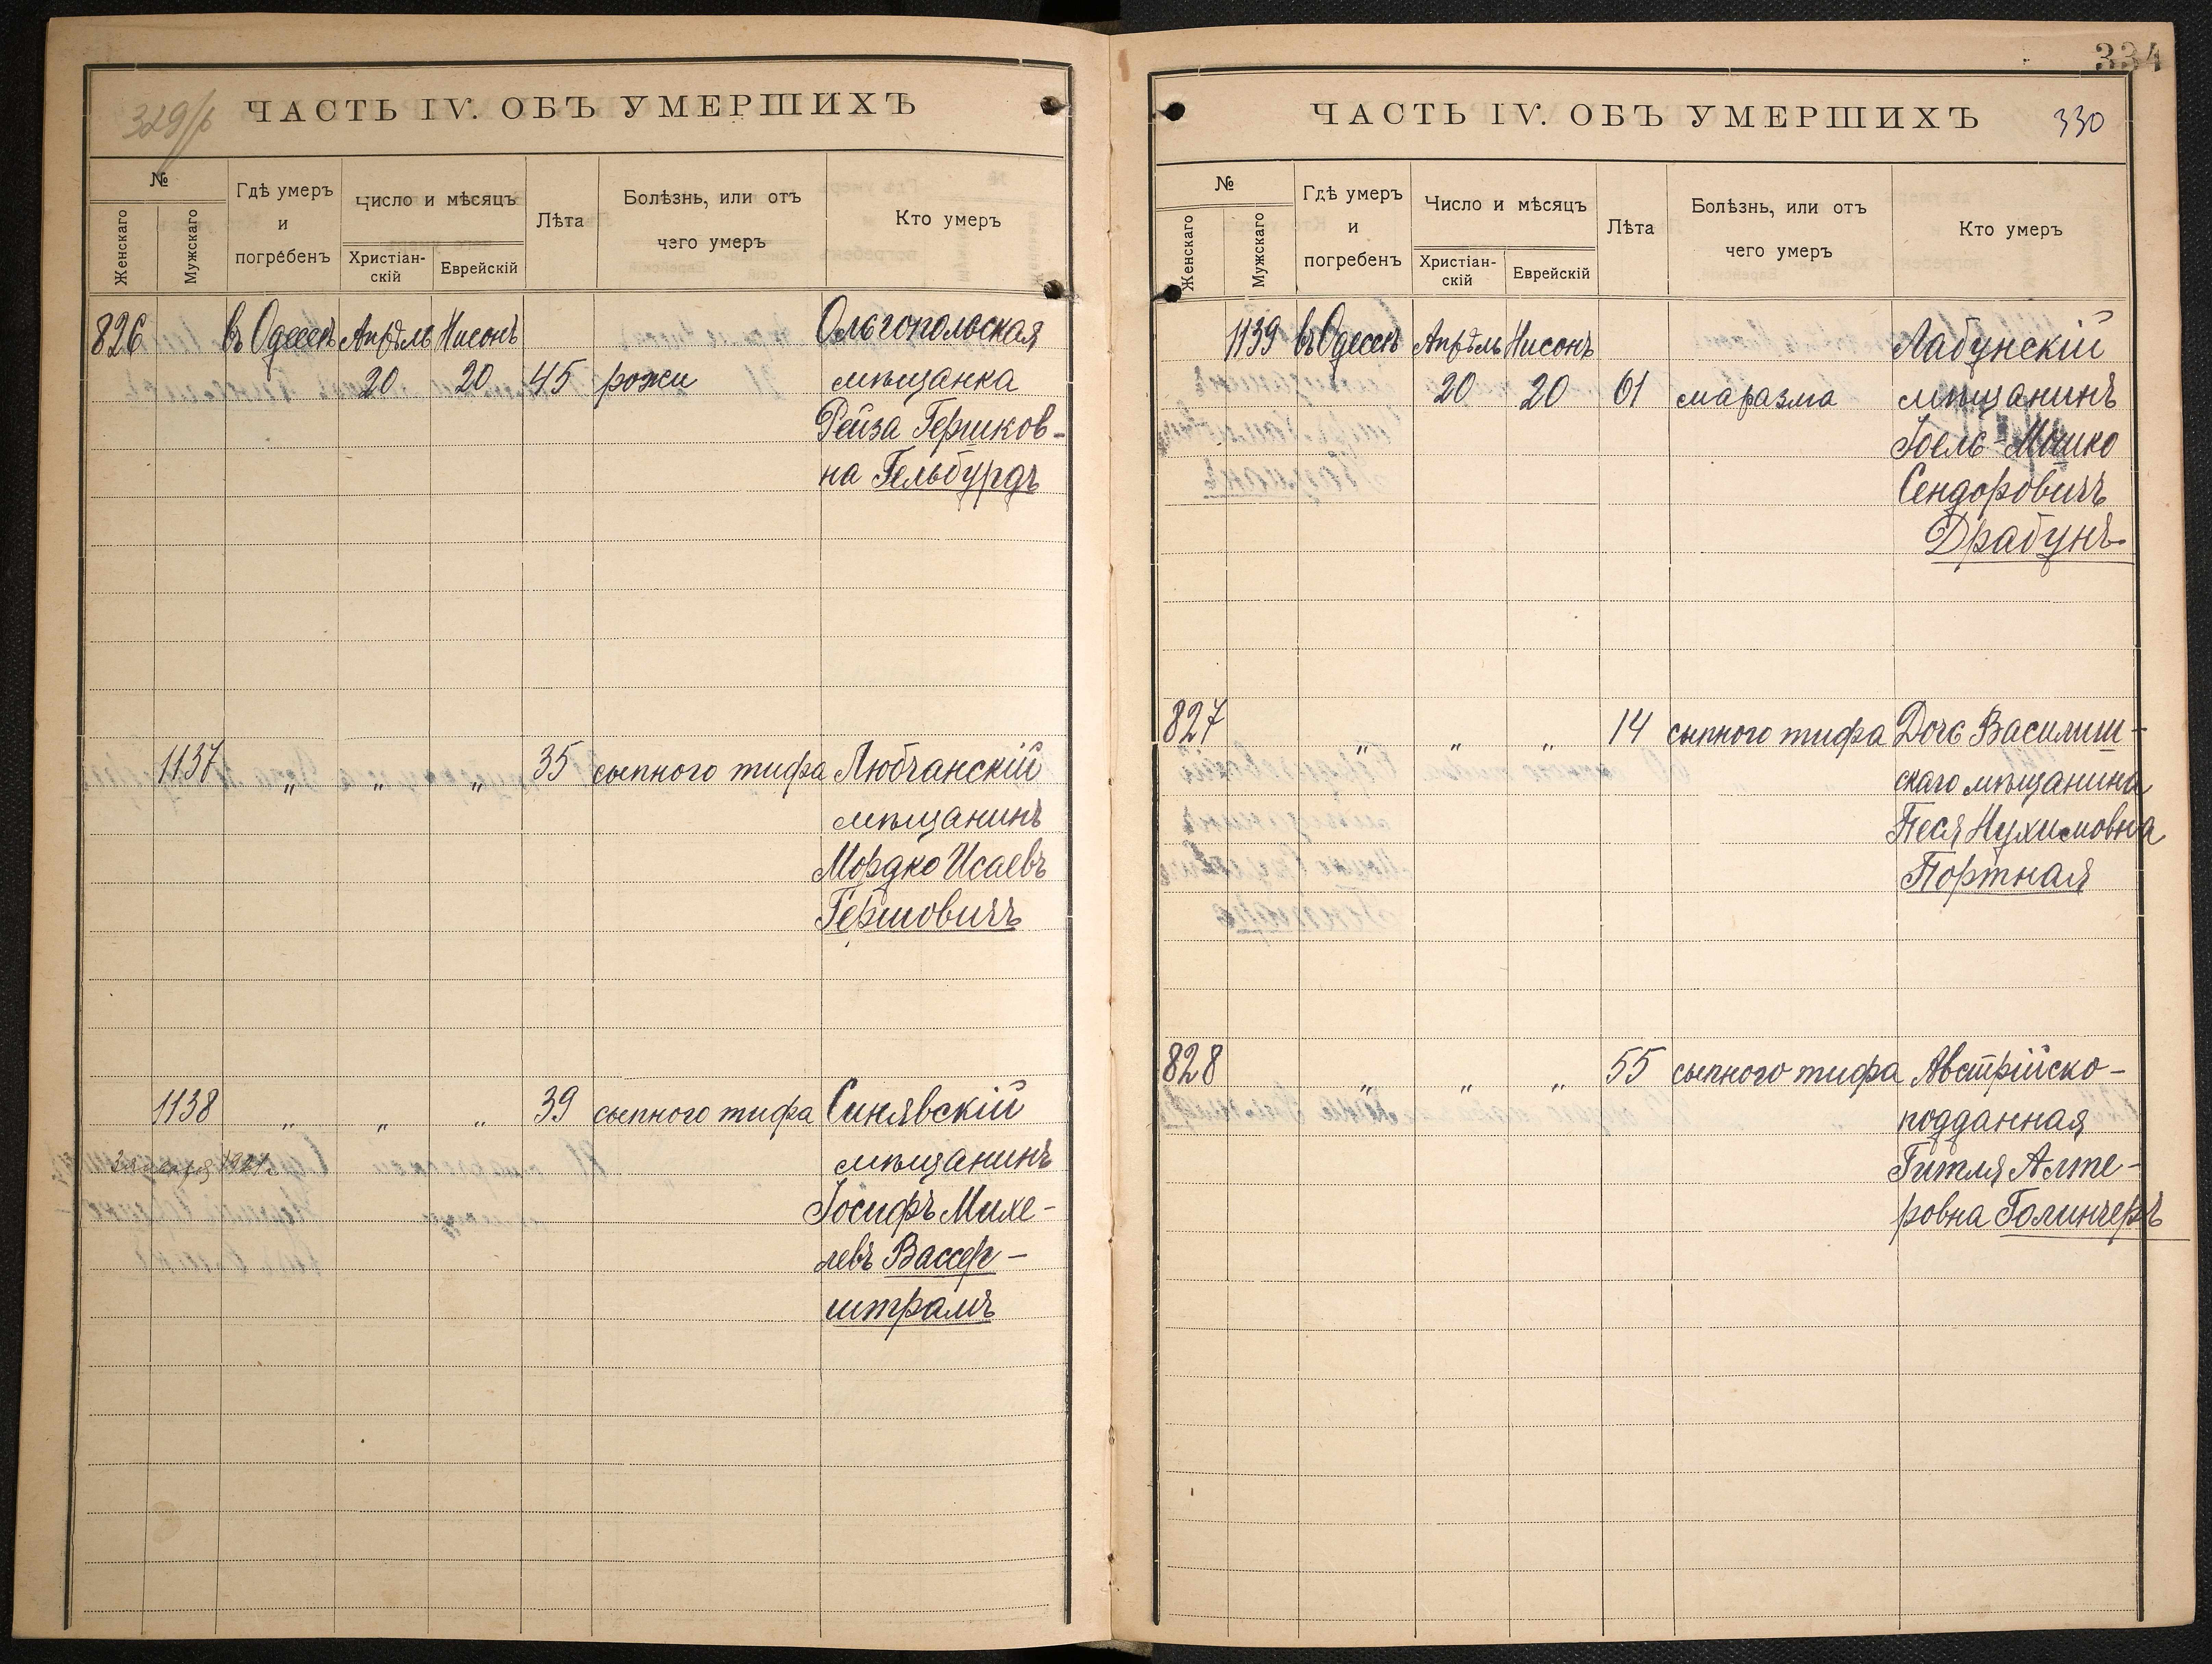 329/б
ЧАСТЬ IV. ОБЪ УМЕРШИХЪ
№
Женскаго
Мужскаго
Гдѣ умеръ
и
погребенъ
Число и мѣсяцъ
Христіан-
скій
Еврейскій
Лѣта
Болѣзнь, или отъ
чего умеръ
Кто умеръ
826 въ Одессѣ Апрѣль Нисонъ Ольгопольская
20 20 45 рожи мѣщанка
Рейза Гершков-
на Гельбурдъ
1137 " " " 35 сыпного тифа Любчанскій
мѣщанинъ
Мордко Исаевъ
Гершовичъ
1138 " " " 39 сыпного тифа Синявскій
1921 г. мѣщанинъ
Іосифъ Михе-
левъ Вассер-
штрамъ
334
ЧАСТЬ IV. ОБЪ УМЕРШИХЪ
330
№
Женскаго
Мужскаго
Гдѣ умеръ
и
погребенъ
Число и мѣсяцъ
Христіан-
скій
Еврейскій
Лѣта
Болѣзнь, или отъ
чего умеръ
Кто умеръ
1139 въ Одессѣ Апрѣль Нисонъ Лабунскій
20 20 61 маразма мѣщанинъ
Іоель-Мошко
Сендоровичъ
Драбунъ
827 " " " 14 сыпного тифа Дочь Василиш-
скаго мѣщанина
Песя Нухимовна
Портная
828 " " " 55 сыпного тифа Австрійско-
подданная
Гитля Алте-
ровна Голинчеръ